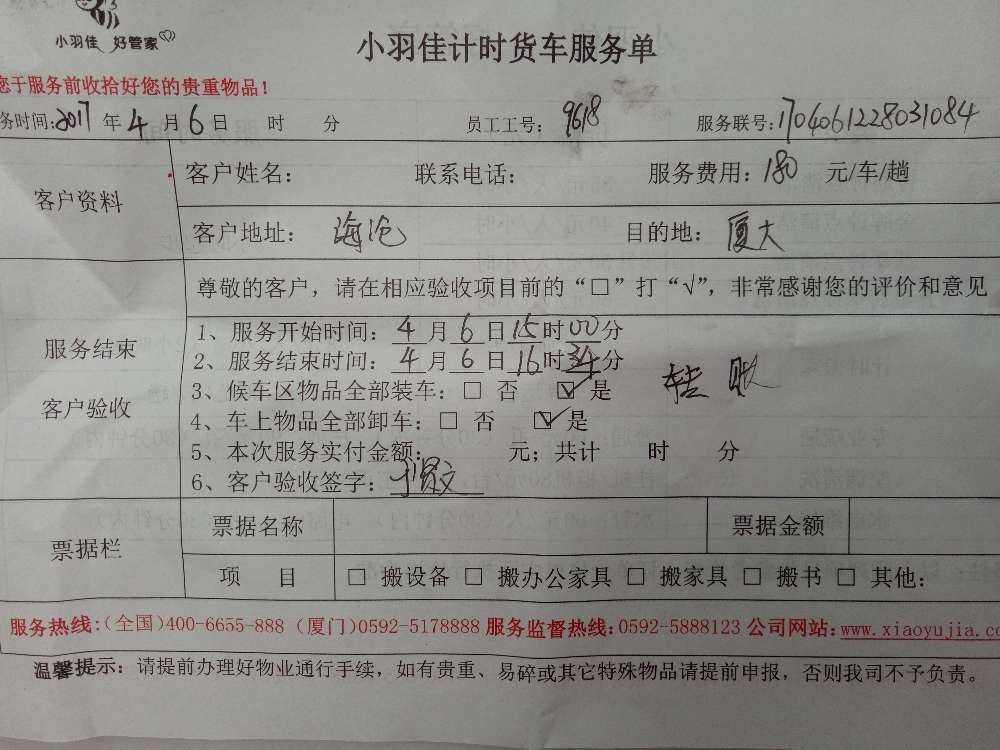 小羽佳 好管家
小羽佳计时货车服务单
您于服务前收拾好您的贵重物品！
务时间：2017 年 4 月 6 日 时 分 员工工号：9618 服务联号：1704061228031084
客户资料
客户姓名： 联系电话： 服务费用：180 元/车/趟
客户地址：海沧 目的地：厦大
服务结束
客户验收
尊敬的客户，请在相应验收项目前的“□”打“√”，非常感谢您的评价和意见
1、服务开始时间：4 月 6 日 15 时 00 分
2、服务结束时间：4 月 6 日 16 时 34 分
3、候车区物品全部装车：□ 否 ☑ 是
4、车上物品全部卸车：□ 否 ☑ 是
5、本次服务实付金额： 元；共计 时 分
6、客户验收签字：
票据栏
票据名称 票据金额
项 目 □ 搬设备 □ 搬办公家具 □ 搬家具 □ 搬书 □ 其他：
服务热线：（全国）400-6655-888（厦门）0592-5178888 服务监督热线：0592-5888123 公司网站：www.xiaoyujia.com
温馨提示：请提前办理好物业通行手续，如有贵重、易碎或其它特殊物品请提前申报，否则我司不予负责。